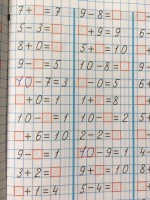 7 + □ = 7 9 - 8 = □
5 - 3 = □ □ + 9 = 9
8 + 0 = □ 5 + □ = 10
9 - □ = 5 10 - 8 = □
10 - 7 = 3 □ - 0 = 5
□ + 0 = 1 1 + □ = 8
10 - □ = 1 10 - □ = 2
□ + 6 = 10 2 - 2 = □
9 - □ = 1 10 - 9 = 1
3 + 2 = □ 9 + □ = 10
□ + 1 = 4 5 - 4 = □